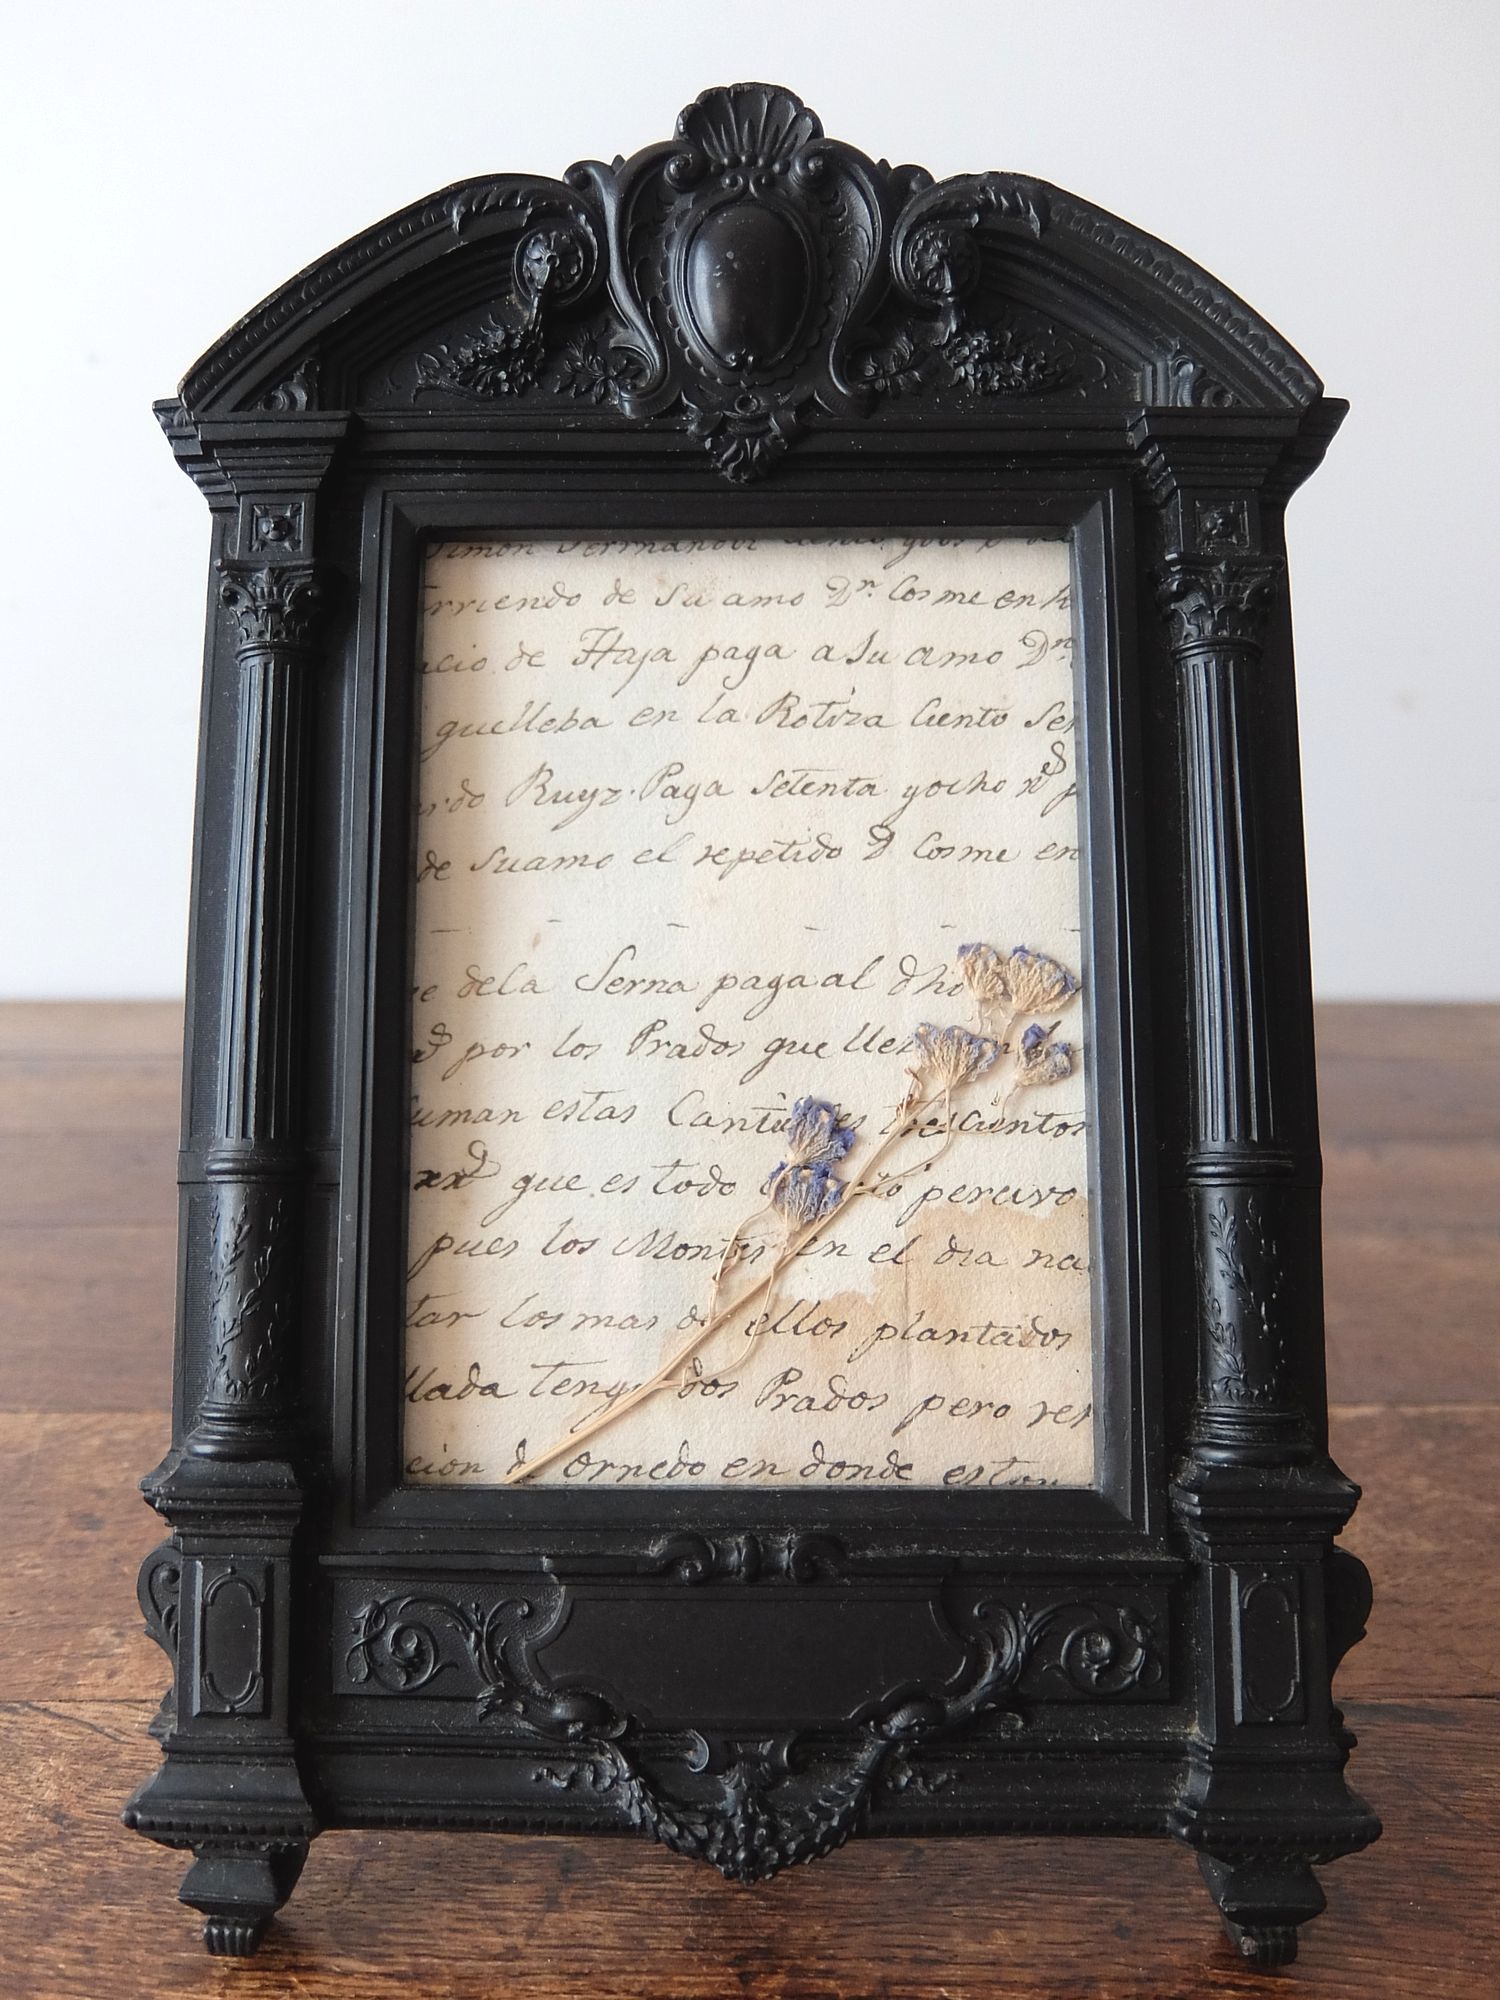 Simon Fernandez
rriendo de Su amo Dn. Cosme en
acio de Haja paga a Su amo Dn.
quelleba en la Rotiza Ciento Se
ardo Ruyz. Paga Setenta yocho rs p
de Suamo el repetido D Cosme en
e dela Serna pagaal dho
rs por los Prados que lleb
uman estas Cantid es trescientos
rs que es todo to percivo
pues los Montes en el dia na
tar los mas de ellos plantados
llada Tengo dos Prados pero re
cion de Ornedo en donde estan